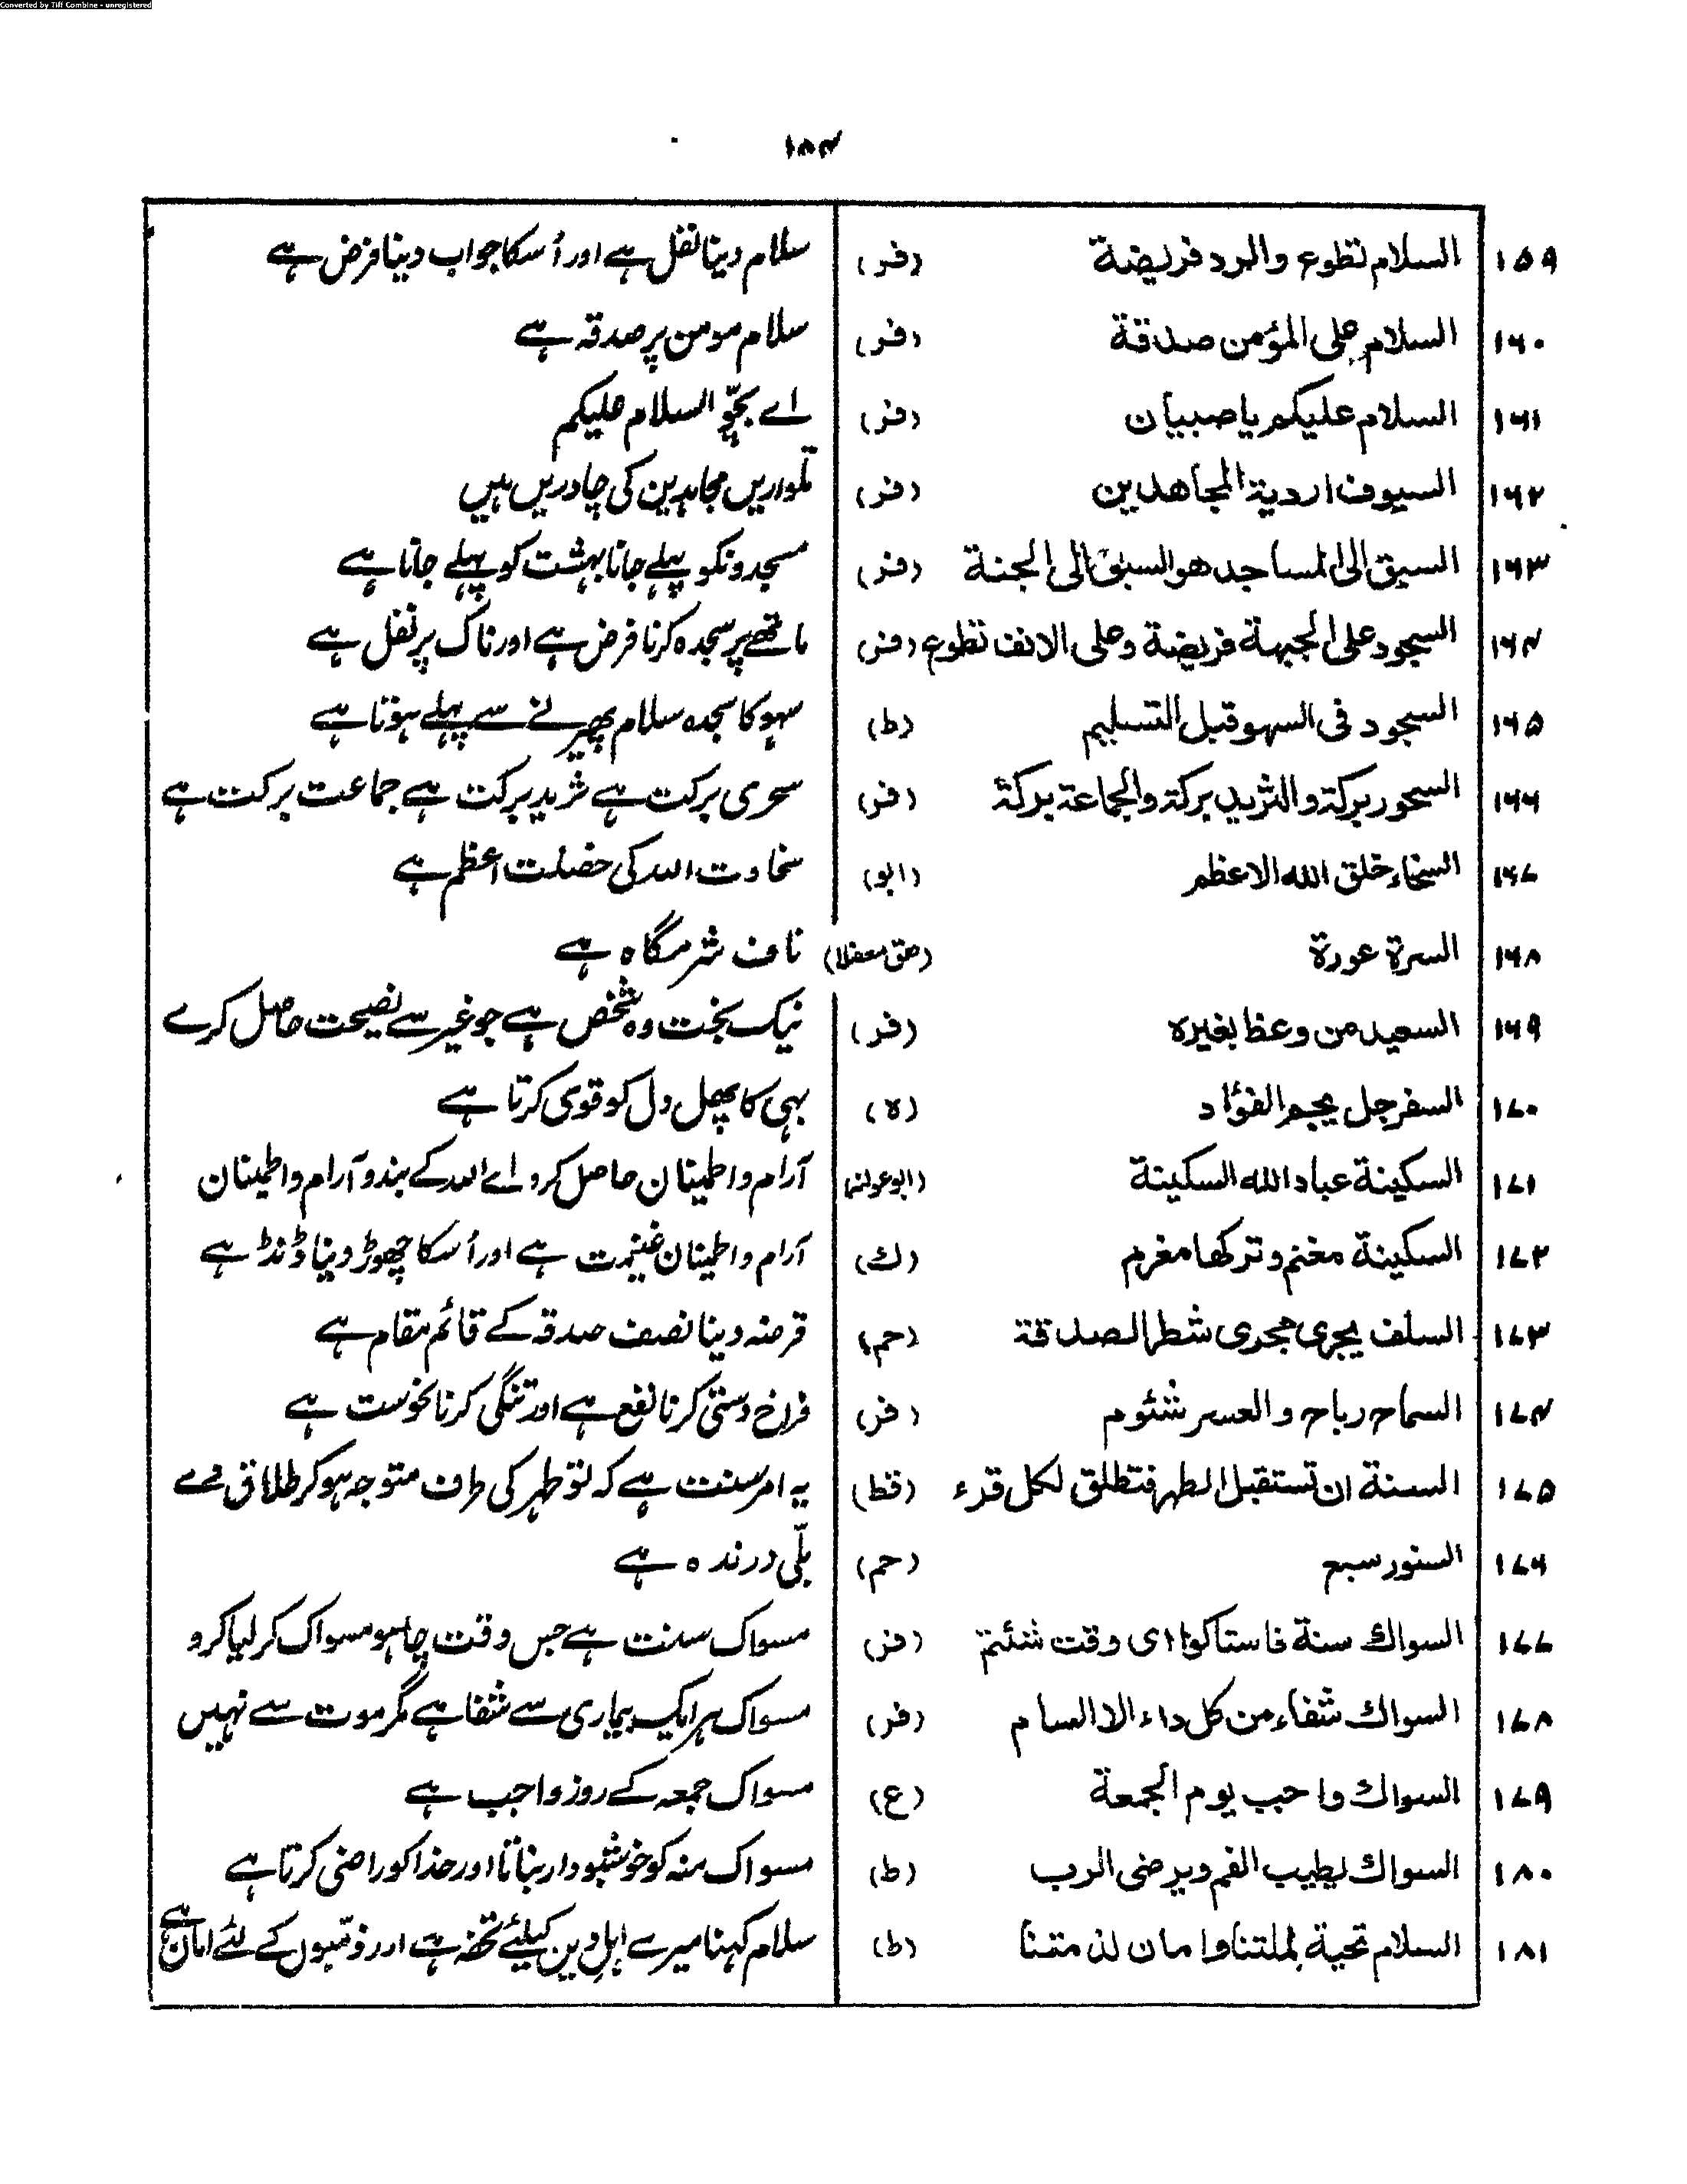 Converted by Tiff Combine - unregistered
۱۵۴
۱۵۹ السلام تطوع والرد فريضة (فر) سلام دینا نفل ہے اور اُسکا جواب دینا فرض ہے
۱۶۰ السلام على المؤمن صدقة (فر) سلام مومن پر صدقہ ہے
۱۶۱ السلام عليكم يا صبيان (فر) اے بچّو السلام علیکم
۱۶۲ السيوف اردية المجاهدين (فر) تلواریں مجاہدین کی چادریں ہیں
۱۶۳ السبق الى المساجد هو السبق الى الجنة (فر) مسجدونکو پہلے جانا بہشت کو پہلے جانا ہے
۱۶۴ السجود على الجبهة فريضة وعلى الانف تطوع (فر) ماتھے پر سجدہ کرنا فرض ہے اور ناک پر نفل ہے
۱۶۵ السجود فى السهو قبل التسليم (ط) سہو کا سجدہ سلام پھیرنے سے پہلے ہوتا ہے
۱۶۶ السحور بركة والثريد بركة والجماعة بركة (فر) سحری برکت ہے ثرید برکت ہے جماعت برکت ہے
۱۶۷ السخاء خلق الله الاعظم (ابو) سخاوت اللہ کی خصلت اعظم ہے
۱۶۸ السرة عورة (هق معضلا) ناف شرمگاہ ہے
۱۶۹ السعيد من وعظ بغيره (فر) نیک بخت وہ شخص ہے جو غیر سے نصیحت حاصل کرے
۱۷۰ السفرجل يجم الفؤاد (ه) بہی کا پھل دل کو قوی کرتا ہے
۱۷۱ السكينة عباد الله السكينة (ابوعوانہ) آرام واطمینان حاصل کرو اے اللہ کے بندو آرام واطمینان
۱۷۲ السكينة مغنم وتركها مغرم (ك) آرام واطمینان غنیمت ہے اور اُسکا چھوڑ دینا ڈنڈ ہے
۱۷۳ السلف يجرى مجرى شطر الصدقة (حم) قرضہ دینا نصف صدقہ کے قائم مقام ہے
۱۷۴ السماح رباح والعسر شئوم (فر) فراخ دستی کرنا نفع ہے اور تنگی کرنا نحوست ہے
۱۷۵ السنة ان تستقبل الطهر فتطلق لكل قرء (قط) یہ امر سنت ہے کہ تو طہر کی طرف متوجہ ہو کر طلاق دے
۱۷۶ السنور سبع (حم) بلّی درندہ ہے
۱۷۷ السواك سنة فاستاكوا اى وقت شئتم (فر) مسواک سنت ہے جس وقت چاہو مسواک کر لیا کرو
۱۷۸ السواك شفاء من كل داء الا السام (فر) مسواک ہر ایک بیماری سے شفا ہے مگر موت سے نہیں
۱۷۹ السواك واجب يوم الجمعة (ع) مسواک جمعہ کے روز واجب ہے
۱۸۰ السواك يطيب الفم ويرضى الرب (ط) مسواک منہ کو خوشبودار بناتا اور خدا کو راضی کرتا ہے
۱۸۱ السلام تحية لملتنا وامان لذمتنا (ط) سلام کہنا میرے اہل دین کیلئے تحفہ ہے اور ذمّیوں کے لئے امان ہے